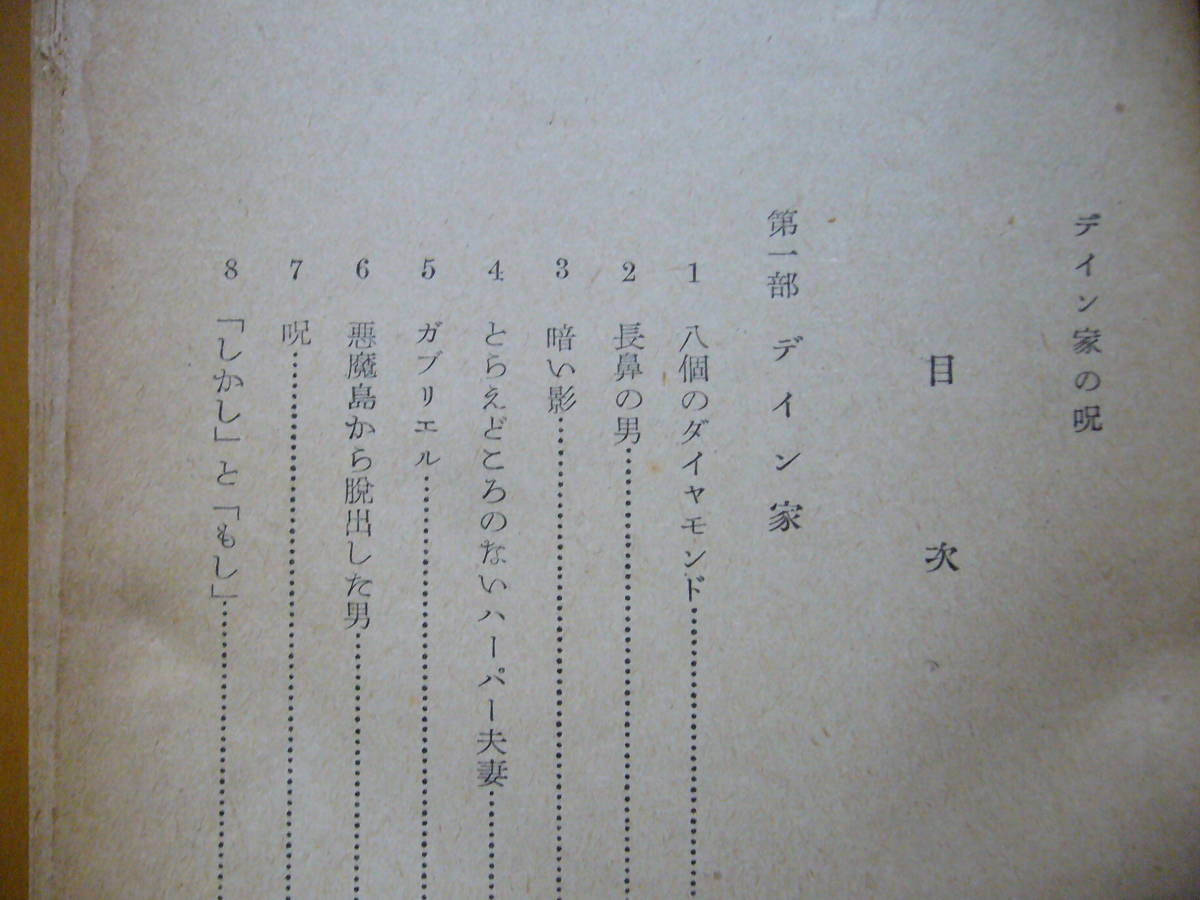 デイン家の呪
目次
第一部 デイン家
1 八個のダイヤモンド……………
2 長鼻の男……………
3 暗い影……………
4 とらえどころのないハーパー夫妻……………
5 ガブリエル……………
6 悪魔島から脱出した男……………
7 呪……………
8 「しかし」と「もし」……………